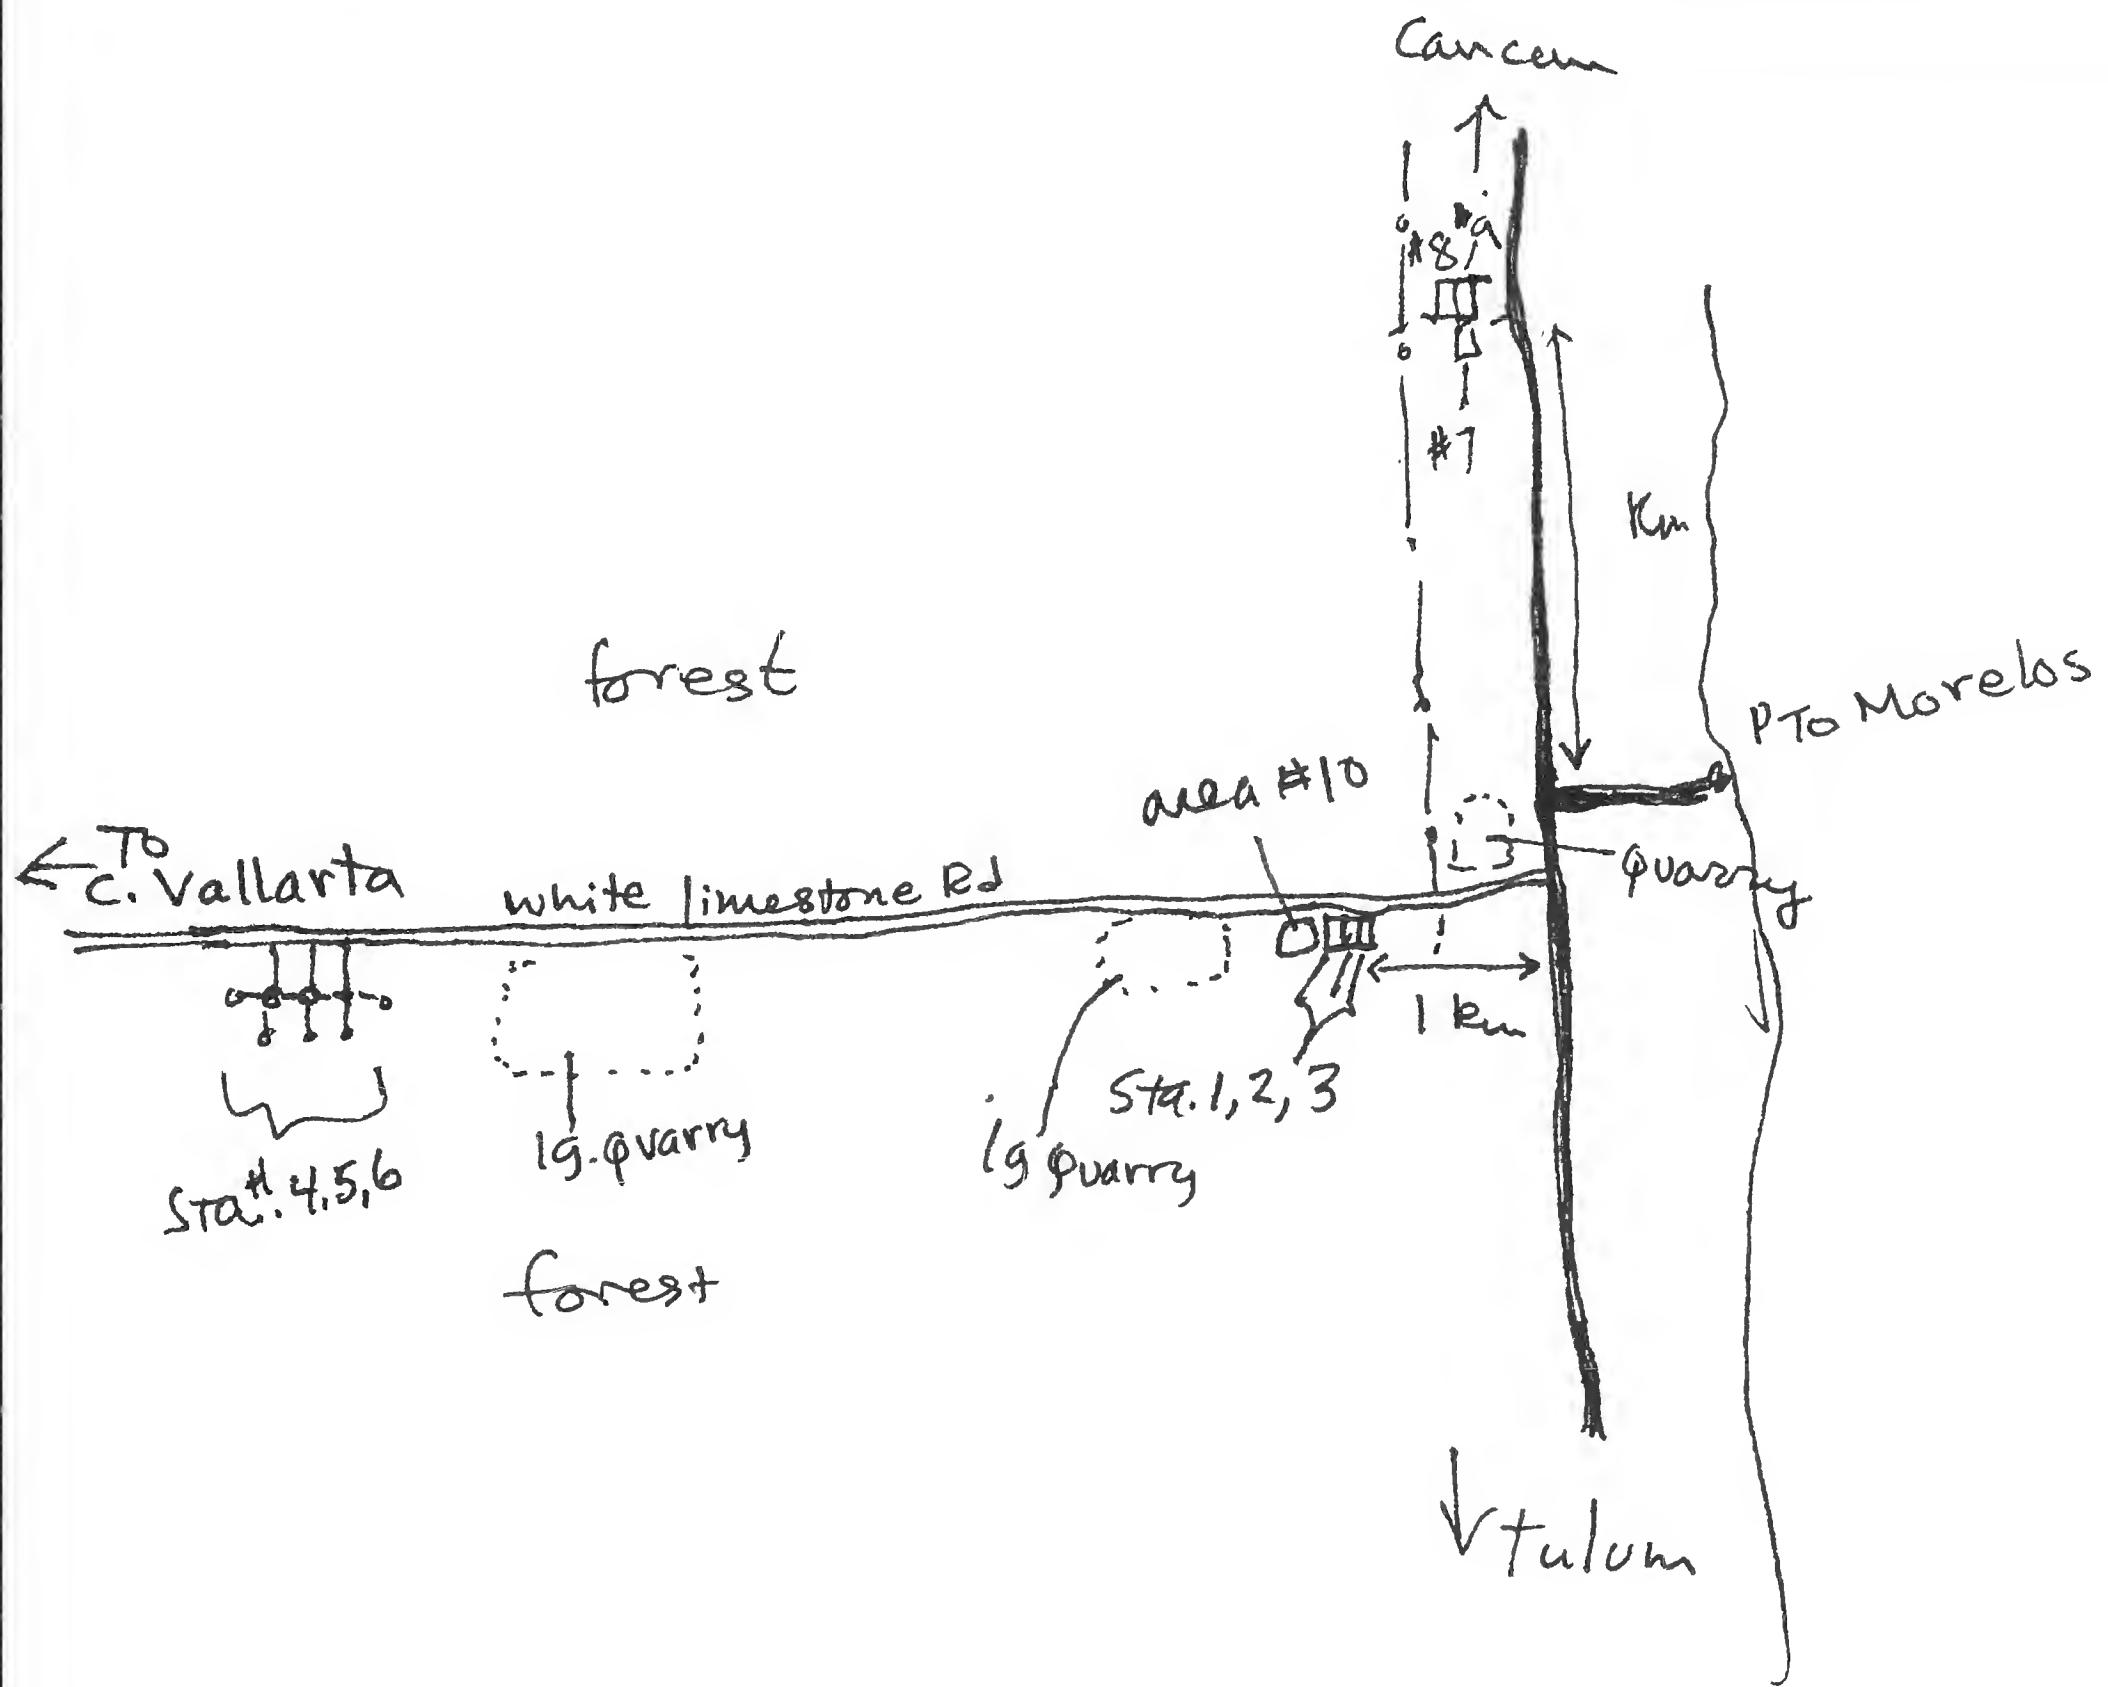 Cancun
#9
#8
#7
Km
forest
PTo Morelos
area #10
Quarry
To
C. Vallarta
white limestone Rd
1 km
Sta. 1, 2, 3
lg. Quarry
lg Quarry
Sta. # 4, 5, 6
forest
Tulum